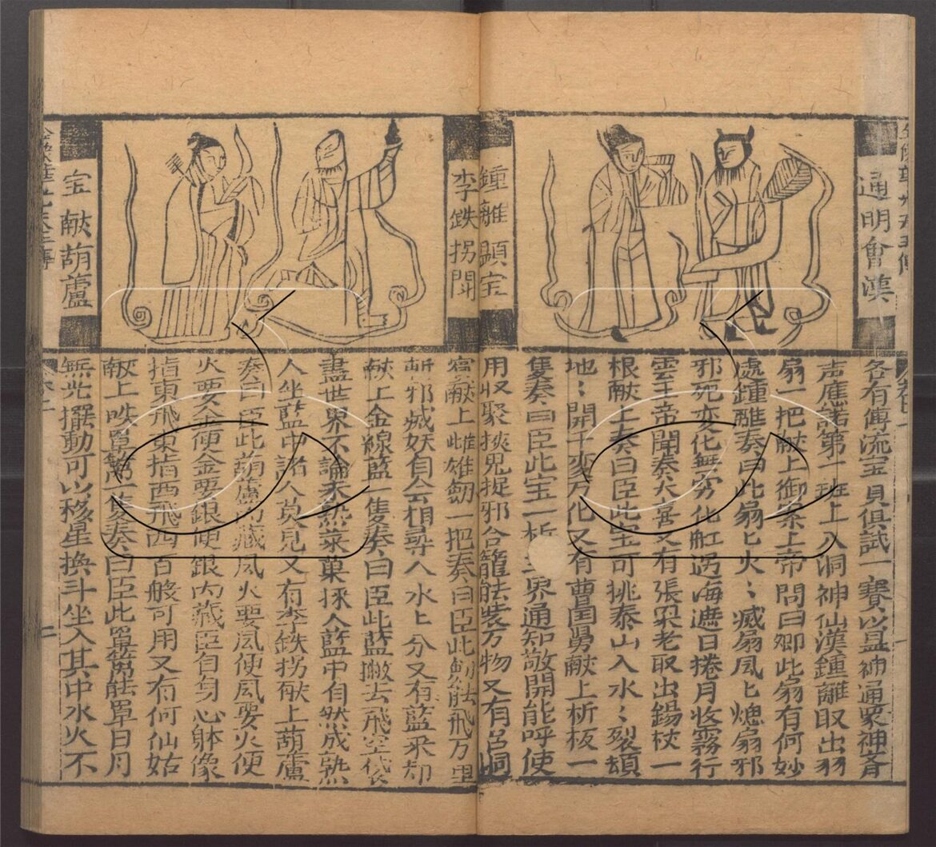 通明會漢
鍾離顯宝
各有傳流宝貝俱試一賽以显神通衆神斉
声應諾第一班上八洞神仙漢鍾離取出羽
扇一把献上御案上帝問曰卿此扇有何妙
處鍾離奏曰此扇匕火〻滅扇風匕熄扇邪
邪死变化無穷化舡過海遮日捲月收霧行
雲玉帝聞奏大喜又有張果老取出錫杖一
根献上奏曰臣此宝可挑泰山入水〻裂頓
地〻開千变万化又有曹国舅献上析板一
隻奏曰臣此宝一析三界通知敲開能呼使
用収聚挾鬼捉邪合籠能装万物又有呂洞
李鉄拐閗
宝献葫蘆
賓献上雌雄劔一把奏曰臣此劔能飛万里
斬邪滅妖自会相尋入水上分又有藍采却
献上金線藍一隻奏曰臣此藍撇去飛空袋
盡世界不論禾熟菜菓採入藍中自然成熟
人坐藍中諸人莫見又有李鉄拐献上葫蘆
奏曰臣此葫蘆内藏風火要風便風要火便
火要金便金要銀便銀内藏臣自匀心躰像
指東飛東指西飛西百般可用又有何仙姑
献上
隻奏曰臣此
能罩日月
無光撰動可以移星換斗坐入其中水火不